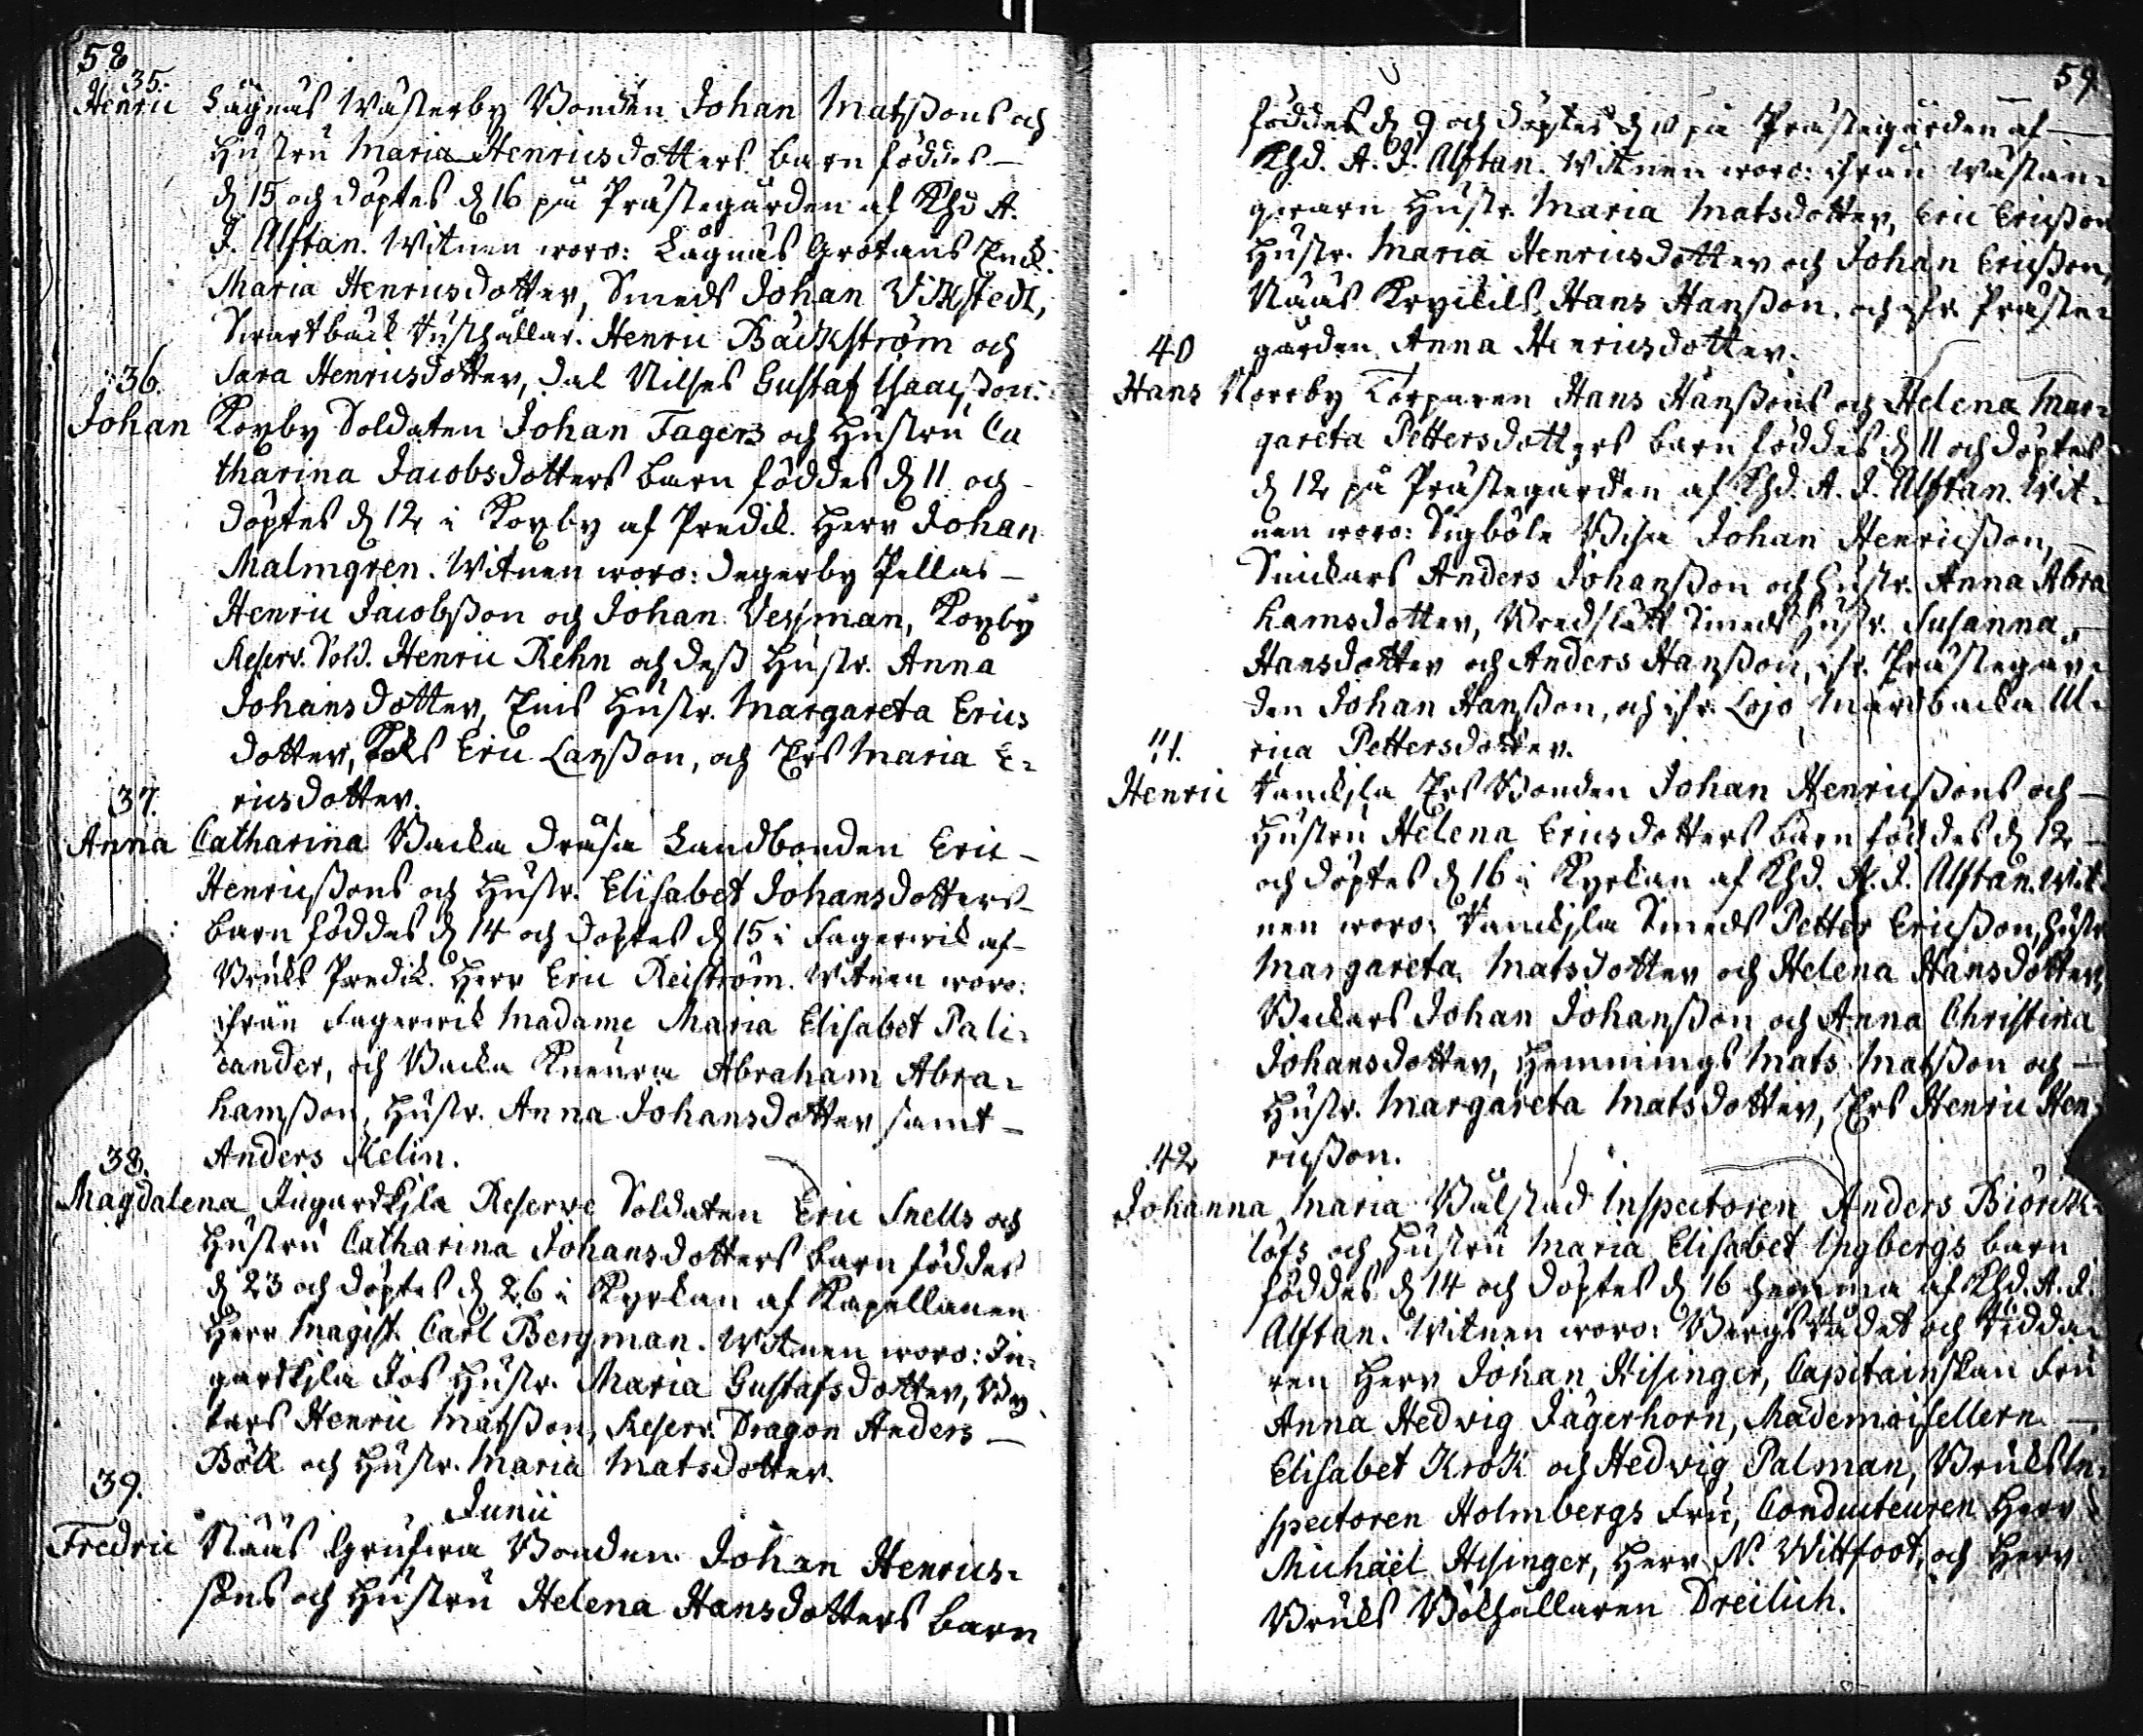 58
35.
Henric Lågnäs Wästerby Bonden Johan Matßons och
Hustru Maria Henricsdotters barn föddes
d 15 och döptes d 16 på Prästegården af Khd A.
J. Alftan. Witnen woro: Lågnäs Grotans Enk.
Maria Henricsdotter, Smeds Johan Vikstedt,
Swartbäck Rusthållar. Henric Bäckström och
Sara Henricsdotter, Dal Nilses Gustaf Isaacßon.
36.
Johan Koxby Soldaten Johan Fagers och Hustru Ca
tharina Jacobsdotters barn föddes d 11 och
döptes d 12 i Koxby af Predik. Herr Johan
Malmgren. Witnen woro: Degerby Pellas
Henric Jacobßon och Johan Vesman, Koxby
Reserv. Sold. Henric Rehn och deß Hustr. Anna
Johansdotter, Hustr. Margareta Erics
dotter, Eric Larßon, och Ers Maria E-
ricsdotter.
37.
Anna Catharina Backa Dräsa Landbonden Eric
Henricßons och Hustr. Elisabet Johansdotters
barn föddes d 14 och döptes d 15 i Fagerwik af
Bruks Predik. Herr Eric Reiström. Witnen woro:
ifrån Fagerwik Madame Maria Elisabet Pali-
cander, och Backa Abraham Abra-
hamßon, Hustr. Anna Johansdotter samt
Anders Kelin.
38.
Magdalena Ingarskila Reserve Soldaten Eric Snells och
Hustru Catharina Johansdotters barn föddes
d 23 och döptes d 26 i Kyrkan af Kapellanen
Herr Magist. Carl Bergman. Witnen woro: In-
garskila Jos Hustr. Maria Gustafsdotter,
Henric Matßon, Reserv. Dragon Anders
Böck och Hustr. Maria Matsdotter.
39.
Junii
Fredric Nääs Gruswa Bonden Johan Henrics-
sons och Hustru Helena Hansdotters barn
59
föddes d 9 och döptes d 10 på Prästegården af
Khd. A. J. Alftan. Witnen woro: ifrån Wästan-
Hustr. Maria Matsdotter, Eric Ericßon
Hustr. Maria Henricsdotter och Johan Ericßon,
Nääs Hans Hanßon, och ifr. Präste-
gården Anna Henricsdotter.
40
Hans Norrby Torparen Hans Hanßons och Helena Mar-
gareta Pettersdotters barn föddes d 11 och döptes
d 12 på Prästegården af Khd. A. J. Alftan. Wit-
nen woro: Sigböle Johan Henricßon,
Snickars Anders Johanßon och Hustr. Anna Abra
hamsdotter, Bredslätt Smeds Hustr. Susanna
Hansdotter och Anders Hanßon, ifr. Prästegår-
den Johan Hanßon, och ifr. Lojo Mårdbacka Ul-
rica Pettersdotter.
41.
Henric Ers Bonden Johan Henricßons och
Hustru Helena Ericsdotters barn föddes d 12
och döptes d 16 i Kyrkan af Khd. A. J. Alftan. Wit-
nen woro: Smeds Petter Ericßon, Hustr
Margareta Matsdotter och Helena Hansdotter,
Backars Johan Johanßon och Anna Christina
Johansdotter, Hemmings Mats Matßon och
Hustr. Margareta Matsdotter, Ers Henric Hen-
ricßon.
42
Johanna Maria Bålstad Inspectoren Anders Biörck-
löfs och Hustru Maria Elisabet Ingbergs barn
föddes d 14 och döptes d 16 hemma af Khd. A. J.
Alftan. Witnen woro: Bergsrådet och Ridda-
ren Herr Johan Hisinger, Capitainskan Fru
Anna Hedvig Jägerhorn, Mademoisellern
Elisabet Krok och Hedvig Palman, Bruks In-
spectoren Holmbergs Fru, Conducteuren Herr
Michaël Hisinger, Herr N. Wittfoot, och Herr
Bruks Bokhållaren Dreilich.